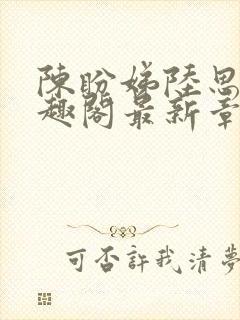 陳盼娣陸思
趣閣最新章
可否許我清夢